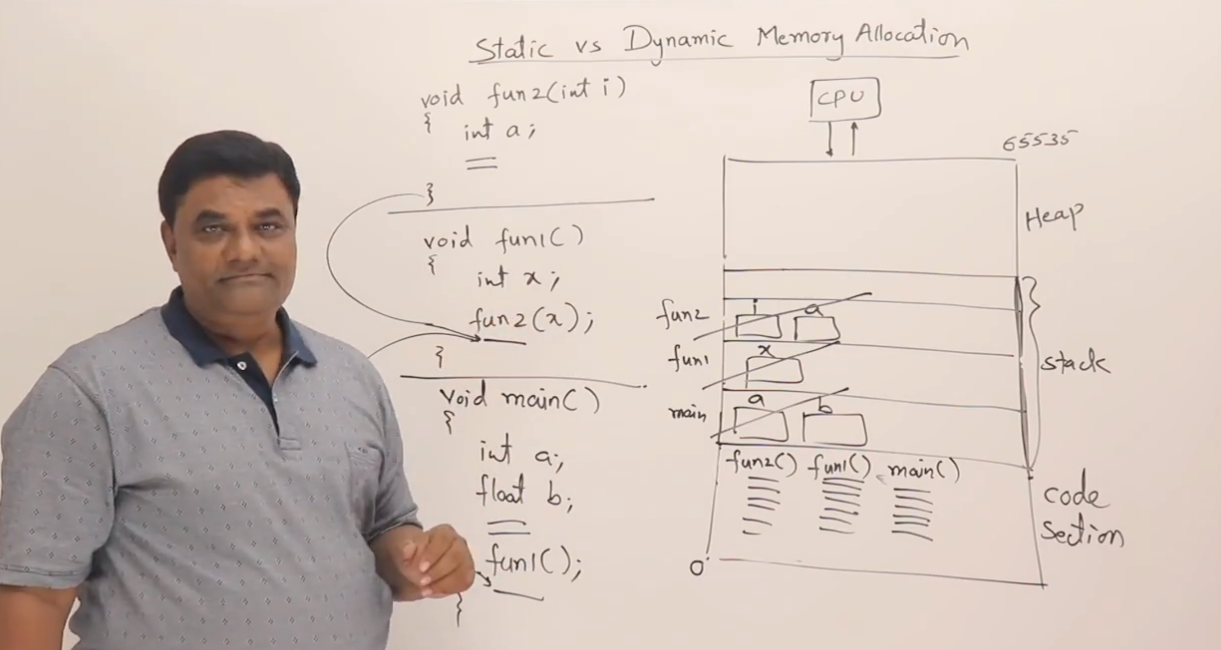 Static vs Dynamic Memory Allocation
void fun2(int i)
{
int a;
}
void fun1()
{
int x;
fun2(x);
}
void main()
{
int a;
float b;
fun1();
}
CPU
65535
Heap
fun2
i
a
fun1
x
stack
main
a
b
fun2() fun1() main()
code
section
0